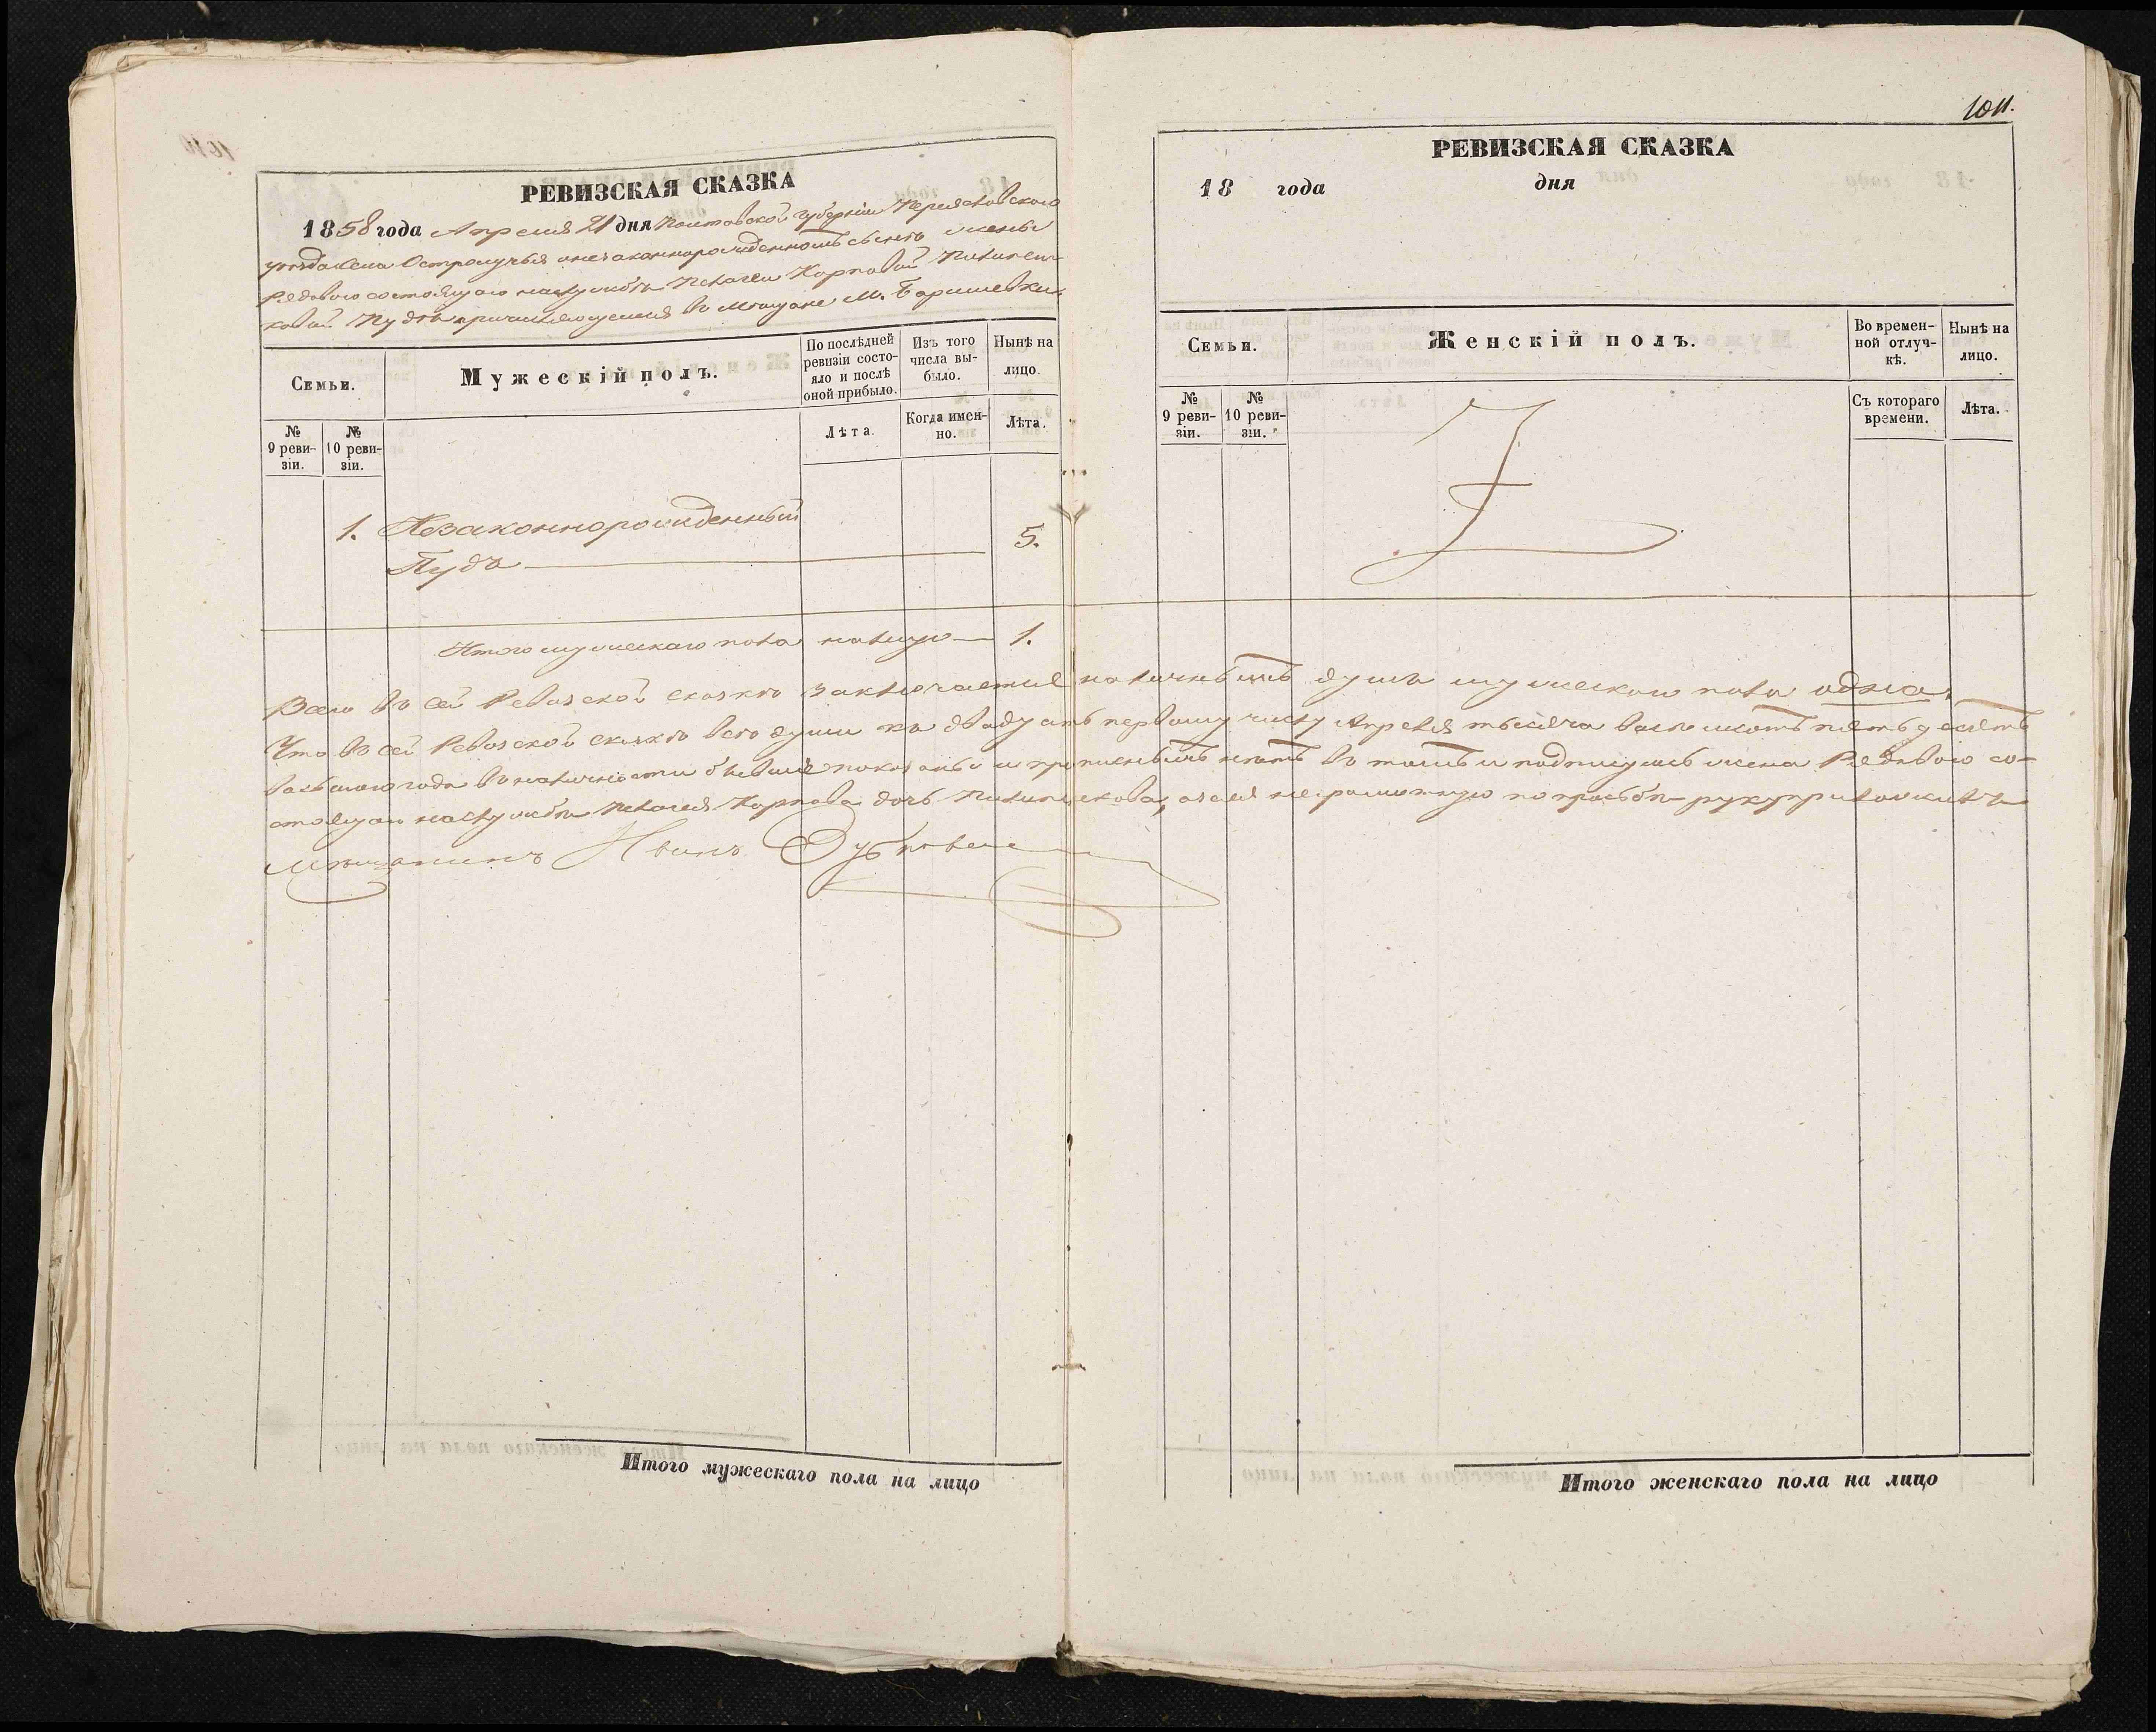 РЕВИЗСКАЯ СКАЗКА
1858 года Апреля 21 дня Полтавской Губерніи Переяславского
уѣзда села Остролучья о незаконнорожденномъ сынѣ жены
Рядового состоящаго на службѣ Пелагеи Карповой
Пудѣ причисляющемся въ мѣщане М. Баришевки.
Семьи.
Мужескій полъ.
По послѣдней ревизіи состояло и послѣ оной прибыло.
Изъ того числа выбыло.
Нынѣ на лицо.
№ 9 ревизіи.
№ 10 ревизіи.
Лѣта.
Когда именно.
Лѣта.
1. Незаконнорожденный
Пудъ 5.
Итого мужескаго пола налицо 1.
Всего въ сей Ревизской сказкѣ заключается наличныхъ душъ мужескаго пола одна.
Что въ сей Ревизской сказкѣ всѣ души къ двадцать первому числу Апреля тысяча восемсотъ пятьдесятъ
восьмого года въ наличности бывшіе показаны и прописныхъ нѣтъ въ томъ и подписуюсь жена Рядового со-
стоящаго на службѣ Пелагея Карпова дочь а за неграмотную по прозбѣ руку приложилъ
мѣщанинъ Иванъ
Итого мужескаго пола на лицо
1011.
РЕВИЗСКАЯ СКАЗКА
18 года дня
Семьи.
Женскій полъ.
Во временной отлучкѣ.
Нынѣ на лицо.
№ 9 ревизіи.
№ 10 ревизіи.
Съ котораго времени.
Лѣта.
Итого женскаго пола на лицо